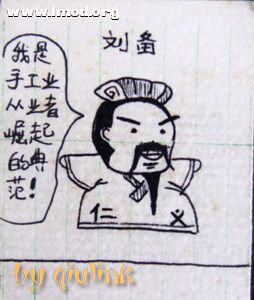 www.lmod.org
刘备
我是
手工业
从业者
崛起
的典
范!
仁 义
by qiulink